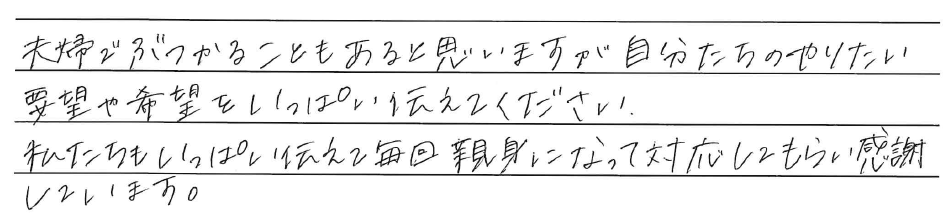 夫婦でぶつかることもあると思いますが自分たちのやりたい
要望や希望をいっぱい伝えてください.
私たちもいっぱい伝えて毎回親身になって対応してもらい感謝
しています。